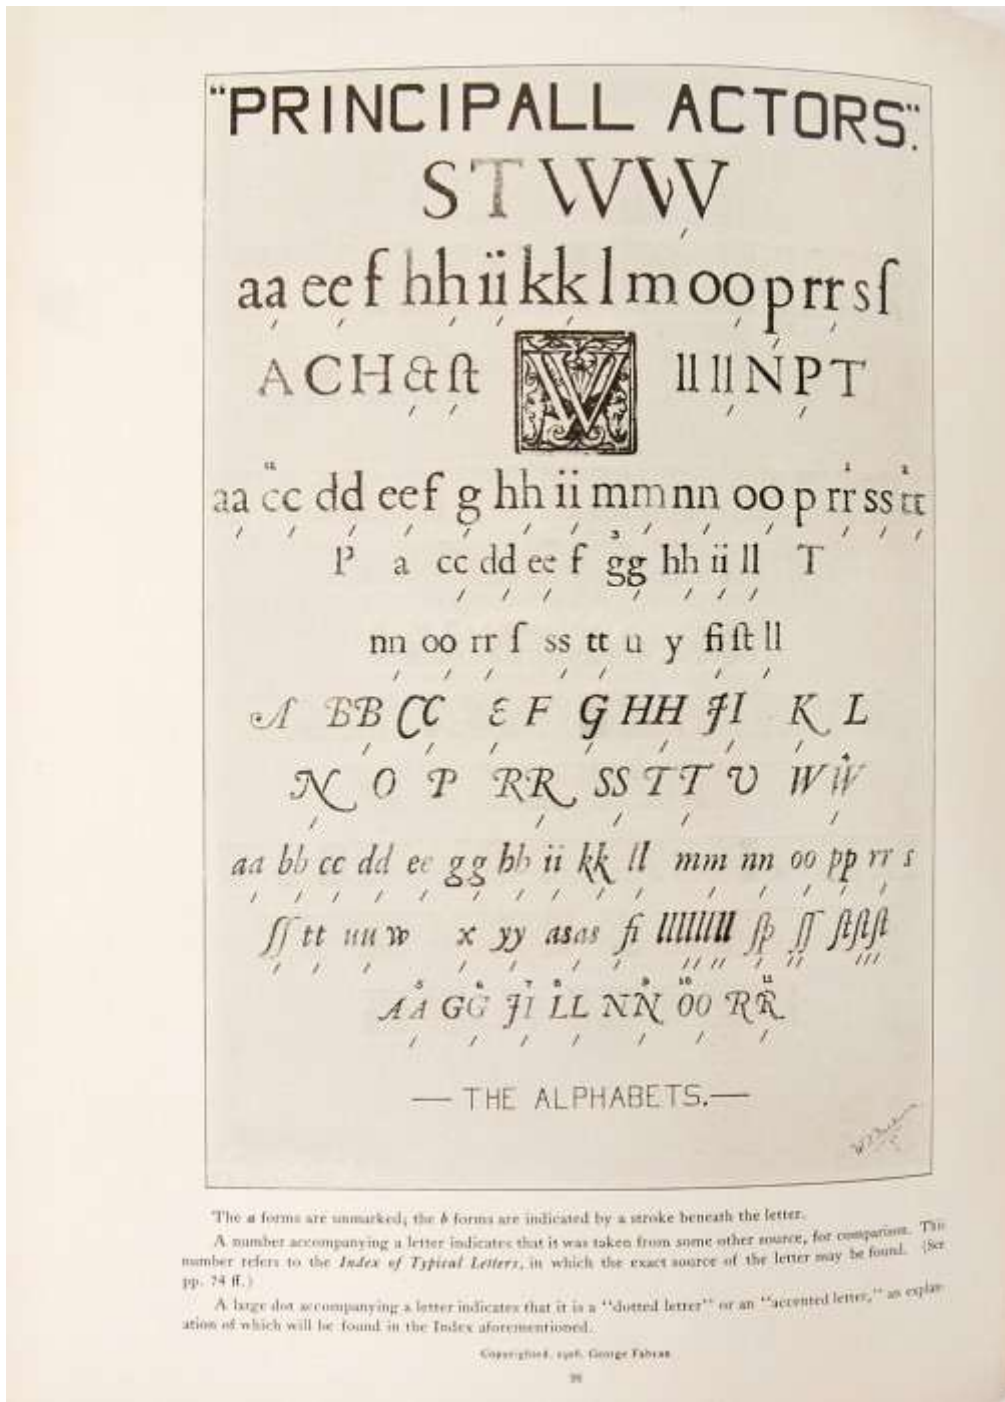 "PRINCIPALL ACTORS".
S T W W
aa ee f hh ii kk l m oo p rr s ſ
A C H & ſt W ll ll N P T
12 1 2
aa cc dd ee f g hh ii mm nn oo p rr ss tt
3
P a cc dd ee f gg hh ii ll T
nn oo rr ſ ss tt u y fi ſt ll
A BB CC E F G HH JI K L
4
N O P RR SS TT U W W
aa bb cc dd ee gg hh ii kk ll mm nn oo pp rr s
ſſ tt uu w x yy as as fi ll ll ll ll ſp ſſ ſt ſt ſt
5 6 7 8 9 10 11
A A G G J I L L N N O O R R
— THE ALPHABETS. —
The a forms are unmarked; the b forms are indicated by a stroke beneath the letter.
A number accompanying a letter indicates that it was taken from some other source, for comparison. The
number refers to the Index of Typical Letters, in which the exact source of the letter may be found. (See
pp. 74 ff.)
A large dot accompanying a letter indicates that it is a "dotted letter" or an "accented letter," an explan-
ation of which will be found in the Index aforementioned.
Copyrighted, 1916, George Fabyan